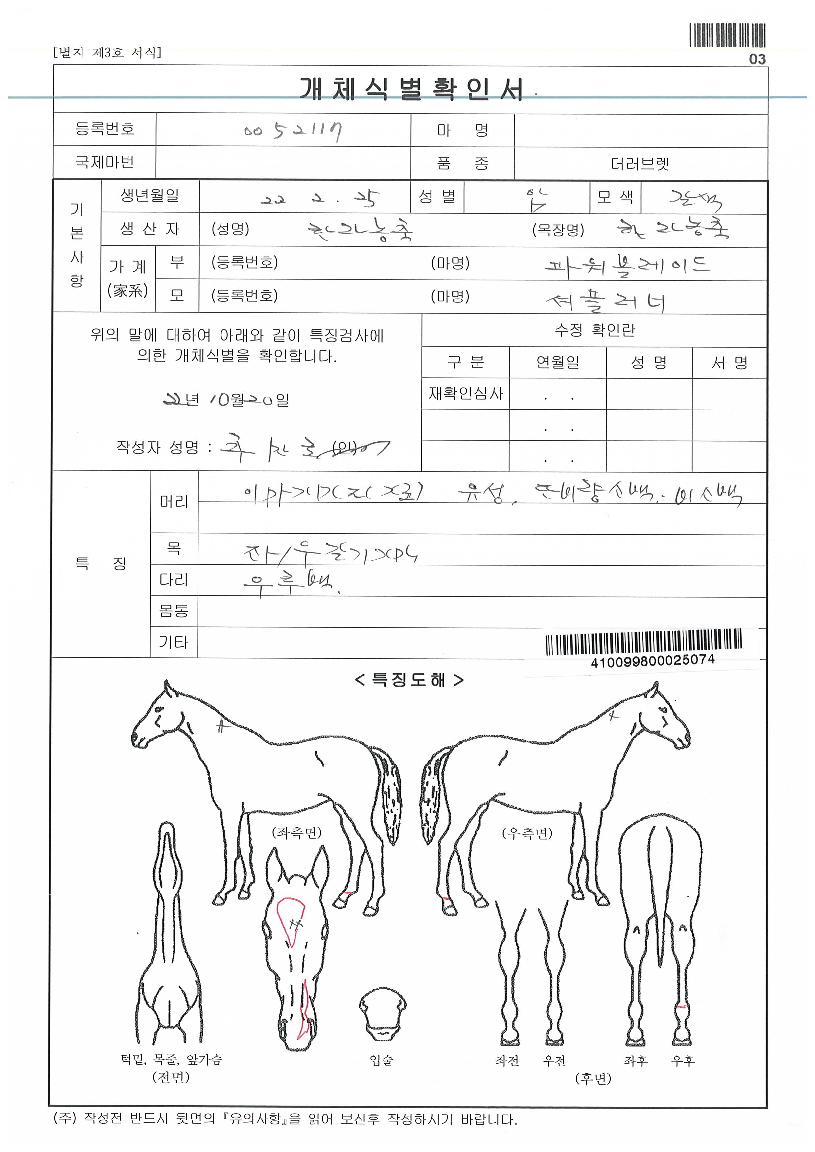 [별지 제3호 서식]
03
개체식별확인서
등록번호 0052117 마 명
국제마번 품 종 더러브렛
기본사항
생년월일 22 2. 25 성별 암 모색 갈색
생 산 자 (성명) 한라농축 (목장명) 한라농축
가계(家系) 부 (등록번호) (마명) 파워블레이드
모 (등록번호) (마명) 셔플러너
위의 말에 대하여 아래와 같이 특징검사에
의한 개체식별을 확인합니다.
22년 10월 20일
작성자 성명 :
수정 확인란
구 분 연월일 성 명 서 명
재확인심사 . .
. .
. .
특 징
머리 유성,
목 좌/우
다리 우후백.
몸통
기타
410099800025074
< 특징도해 >
(좌측면) (우측면)
턱밑, 목줄, 앞가슴 입술 좌전 우전 좌후 우후
(전면) (후면)
(주) 작성전 반드시 뒷면의 『유의사항』을 읽어 보신후 작성하시기 바랍니다.